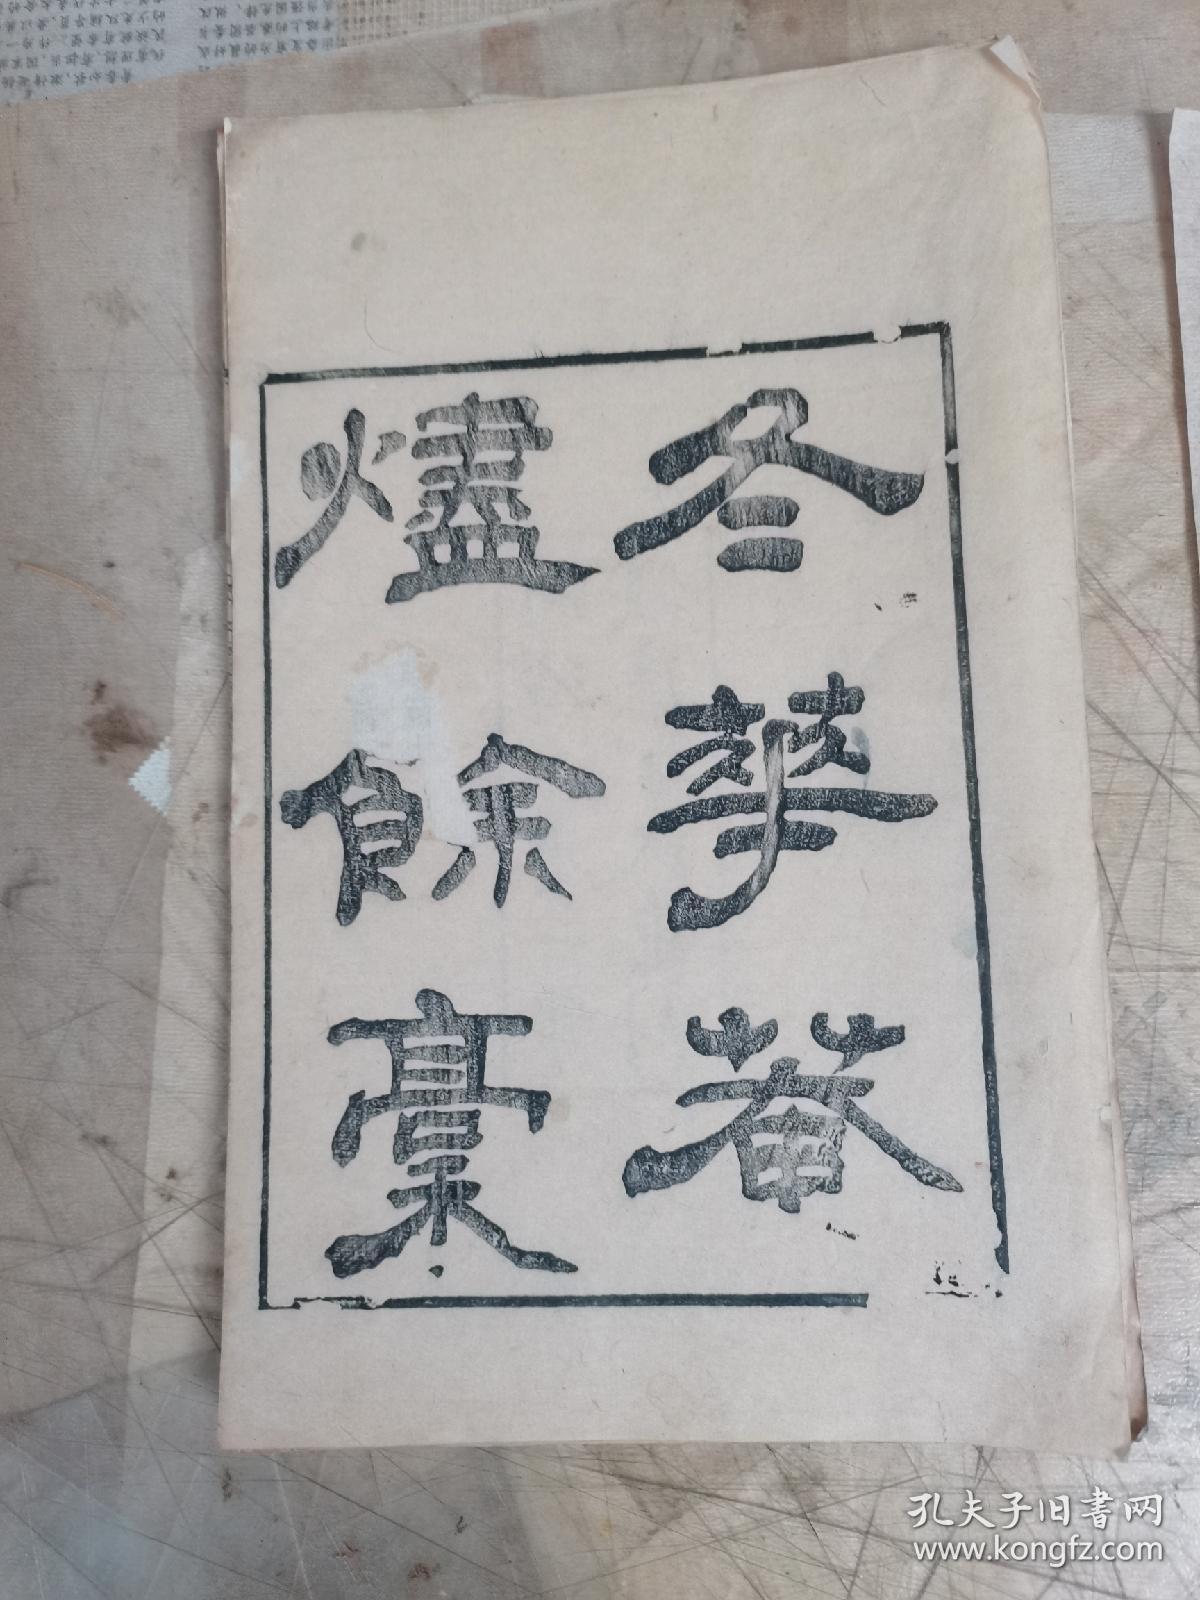 冬華菴
燼餘稾
孔夫子旧書网
www.kongfz.com